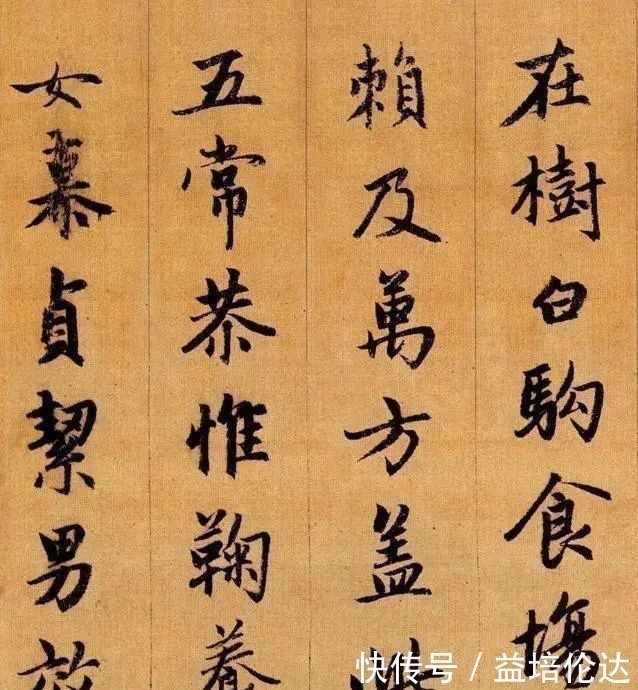 在樹白駒食塲
賴及萬方盖此
五常恭惟鞠養
女慕貞絜男
快传号 / 益培伦达